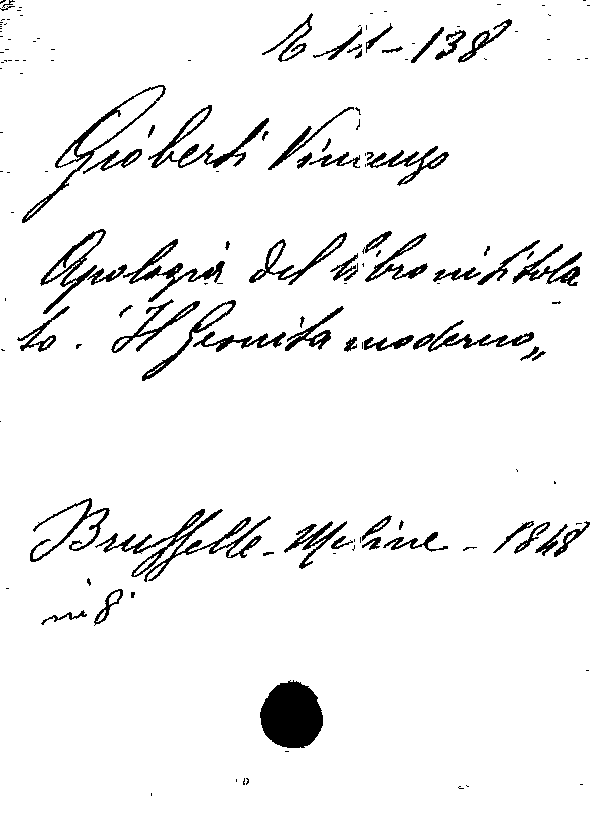 E 11 - 138
Gioberti Vincenzo
Apologia del libro intitola
to. "Il Gesuita moderno„
Bruffelle - Meline - 1848
in 8°